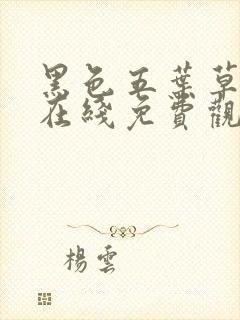 黑色五葉草
在綫免費觀
楊雲